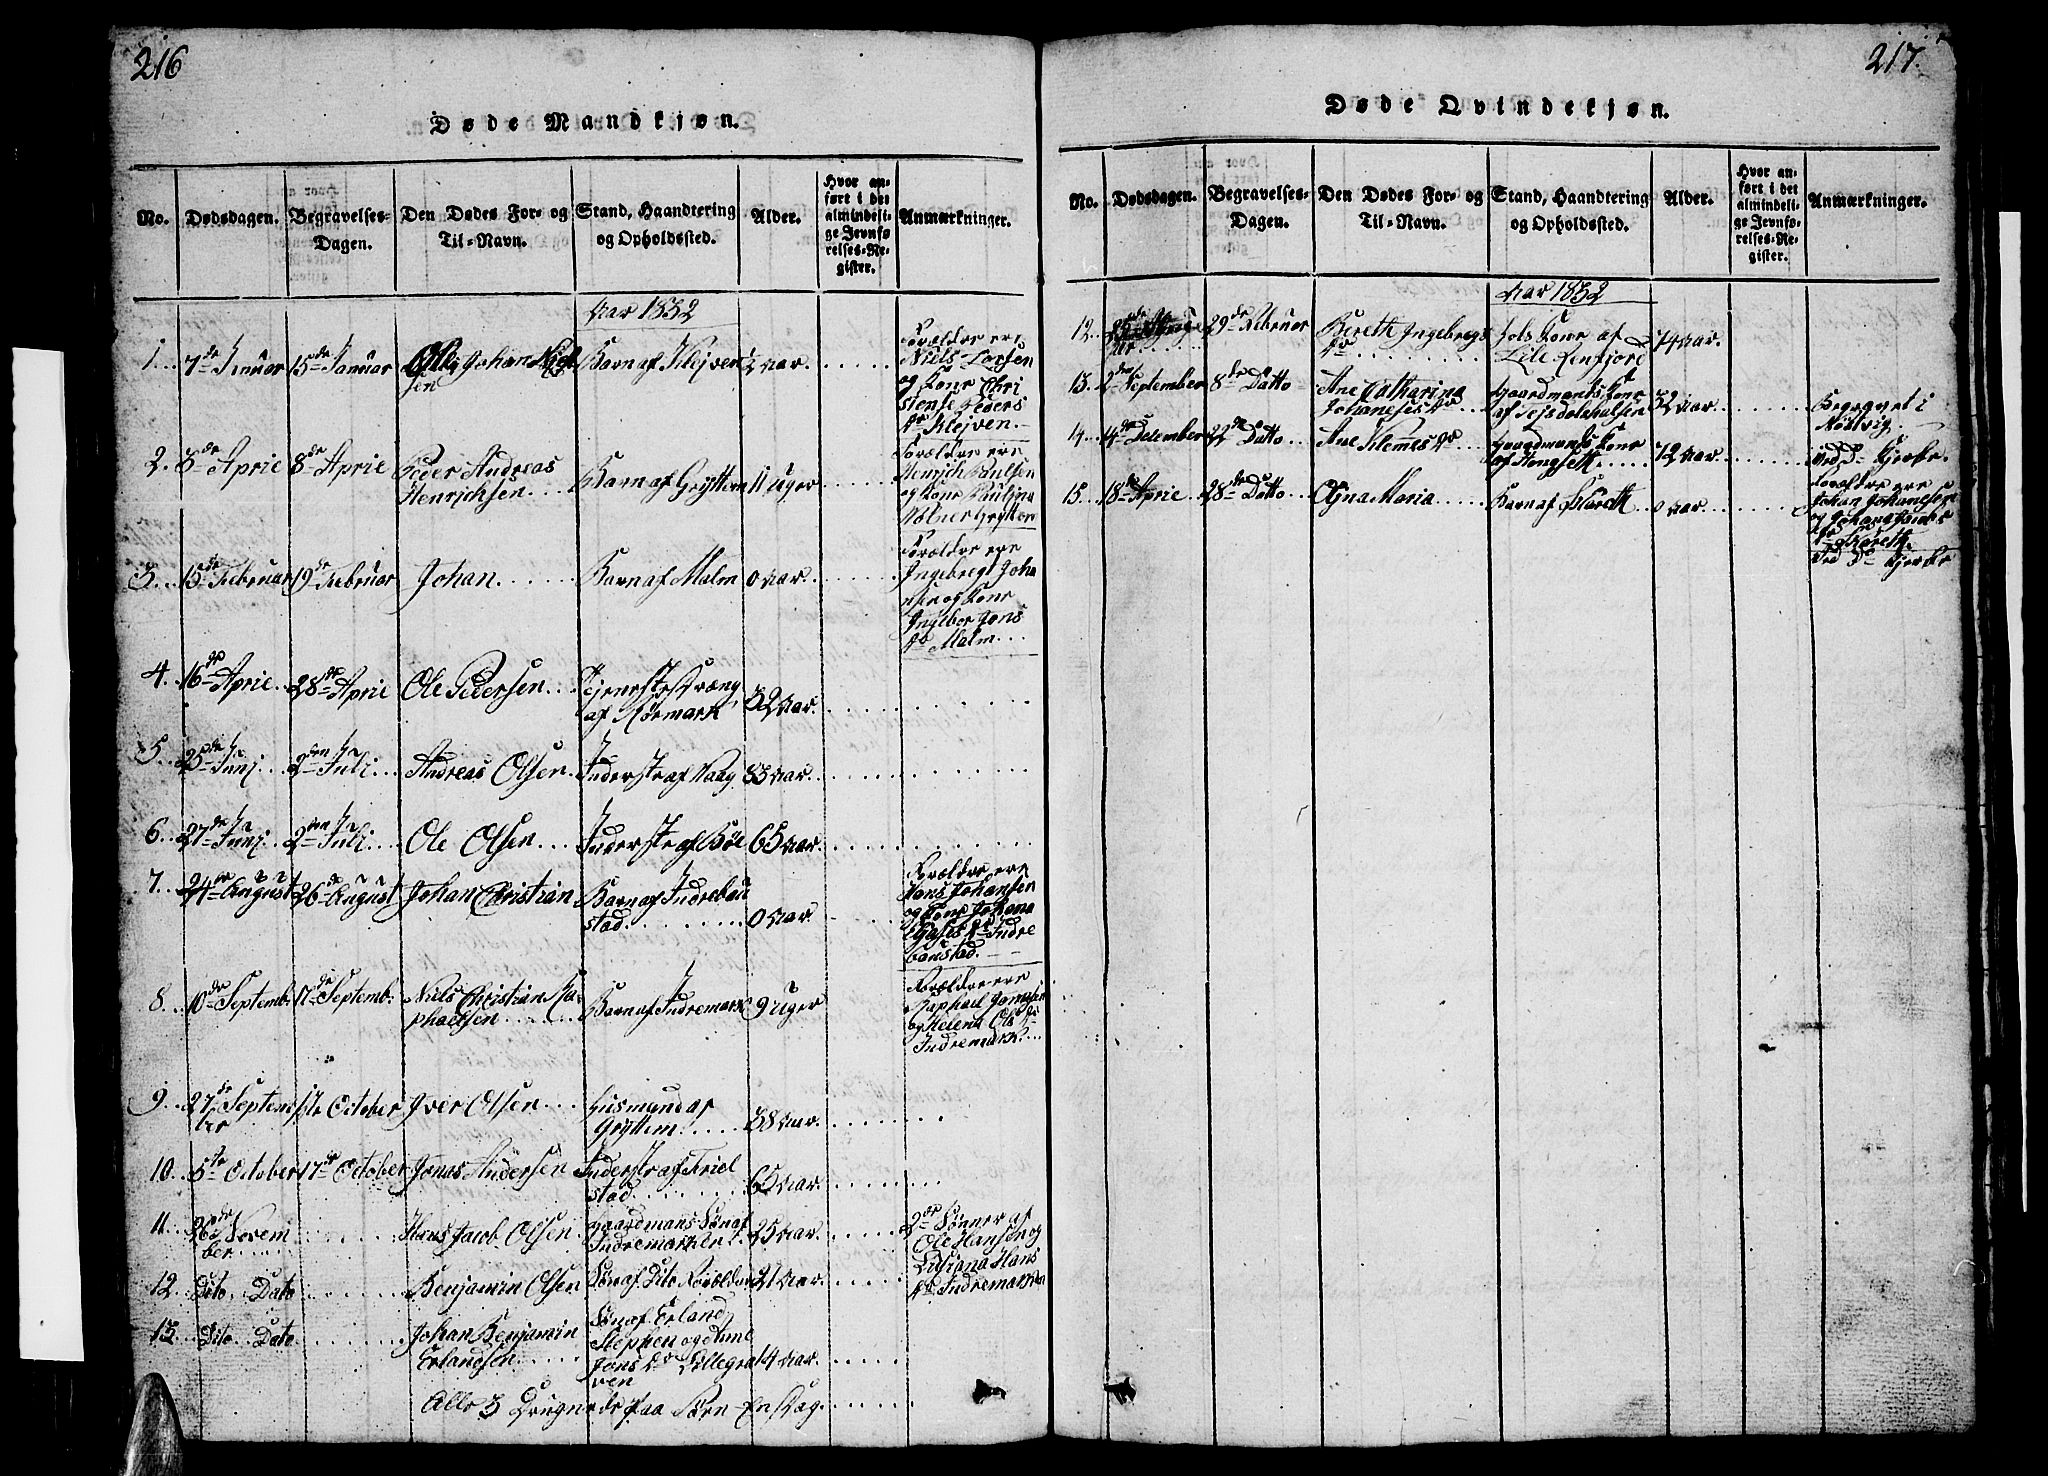 216
Døde Mandkjøn.
No.
Dødsdagen.
Begravelses-
Dagen.
Den Dødes For- og
Til-Navn.
Stand, Haandtering
og Opholdssted.
Alder.
Hvor an-
ført i det
almindeli-
ge Jevnfø-
relses-Re-
gister.
Anmærkninger.
Aar 1832
1. 7de Januar 15de Januar Ole Johan
sen
Barn af Klejven
Aar
Forældre ere
Niels Larsen
og Kone Chri
stense Peders
Dr Klejven.
2. 3de Aprie 8de Aprie Peder Andreas
Henrichsen
Barn af Gryttem 11 Uger
Forældre ere
Henrich Paulsen
og Kone Paulina
3. 15de Februar 19de Februar Johan
Barn af Malm 0 Aar
Forældre ere
Ingebregt Joha
og Kone
Ingebor Jons
Dr Malm
4. 16de Aprie 28de Aprie Ole Pedersen
Tjenestedræng
af Mørmark 32 Aar.
5. 25de Junj 2den Juli Andreas Olsen
Inderst af Vaag 83 Aar
6. 27de Junj 2den Juli Ole Olsen
Inderst af Bøe 65 Aar
7. 24de August 26de August Johan Christian
Barn af Indrebau
stad
0 Aar
Forældre ere
Hans Johansen
og Kone Johana
Dr Indre
baustad.
8. 10de Septemb. 17de Septemb. Niels Christian Ra
phaelsen
Barn af Indremark 9 Uger
Forældre ere
Raphael Jonassen
og Helena Ols Dr
Indremark
9. 27de Septem
ber
1ste October Iver Olsen
Husmand af
Gryttem. 38 Aar.
10. 5te October 17de October Jonas Andersen
Inderst af Friel
stad 65 Aar.
11. 26de Novem
ber
Hans Jacob Olsen
Gaardmans Søn af
Indremarken 25 Aar
2de Sønner af
Ole Hansen og
Lusiana Hans
Dr Indremarken
12. Dito Dato Benjamin Olsen
Søn af Dito Forældre 21 Aar
13. Dito Dato Johan Benjamin
Erlandsen
Søn af Erland
Stephen og
Jons Dr Lillegra
ven
14 Aar.
Alle 3 Drugnede paa Søen En Dag.
217.
Døde Qvindekjøn.
No.
Dødsdagen.
Begravelses-
Dagen.
Den Dødes For- og
Til-Navn.
Stand, Haandtering
og Opholdssted.
Alder.
Hvor an-
ført i det
almindeli-
ge Jevnfø-
relses-Re-
gister.
Anmærkninger.
Aar 1832
12. 29de Februar Bereth Ingebregts
Dr
Kone af
74 Aar.
13. 2den September 8de Datto Ane Catharina
Johaneses Dr
Gaardmands Kone
32 Aar
Begravet i
14. 14de Desember 22de Datto Ane Klemes Dr
Gaardmands Kone
af Hongseth 72 Aar
Ved Do Kjerke.
15. 18de Aprie 28de Datto Olina Maria
Barn af Skareth 0 Aar
Forældre ere
Johan Johanesen
og Johana Jacobs
Dr Skareth
Ved Do Kjerke